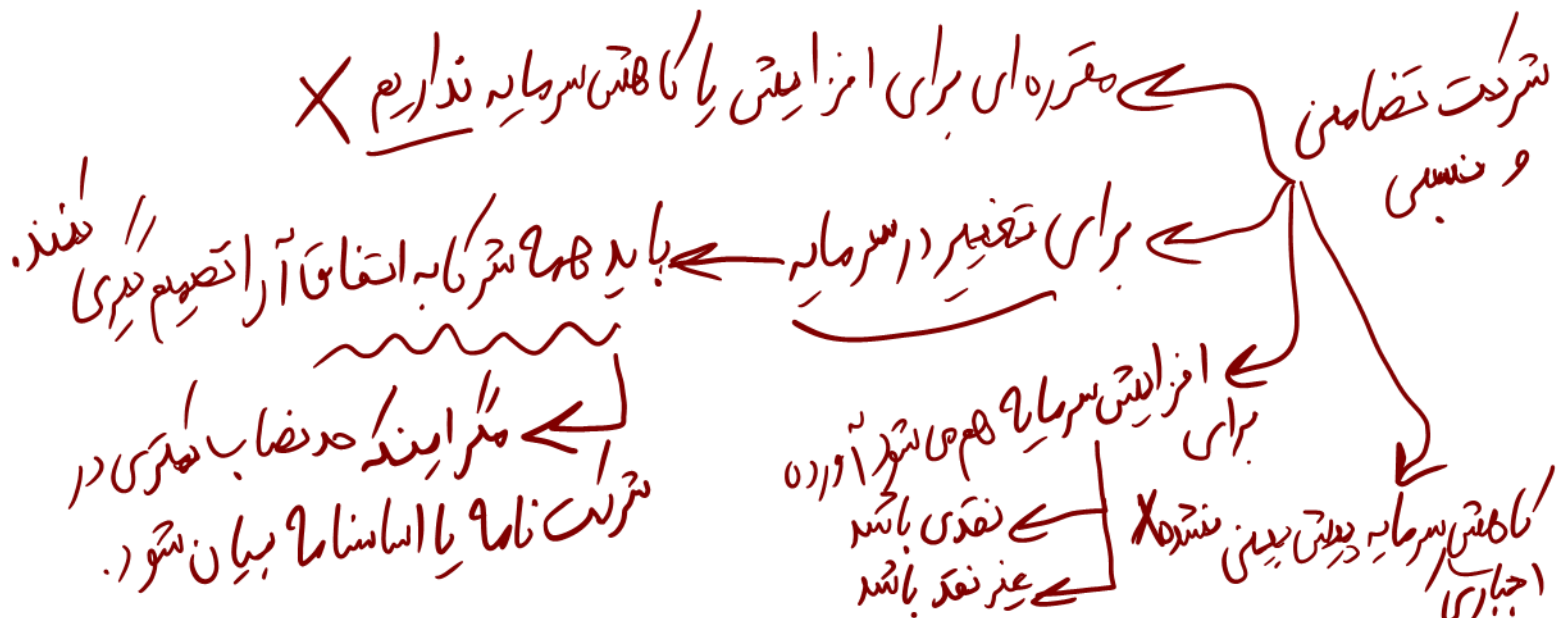 شرکت تضامنی
و نسبی
مقرره ای برای افزایش یا کاهش سرمایه نداریم X
برای تغییر در سرمایه
باید همه شرکا به اتفاق آرا تصمیم گیری
کنند.
مگر اینکه حد نصاب کمتری در
شرکت نامه یا اساسنامه بیان شود.
برای افزایش سرمایه هم می شود آورده
نقدی باشد
غیر نقد باشد
کاهش سرمایه پیش بینی نشده X
اجباری